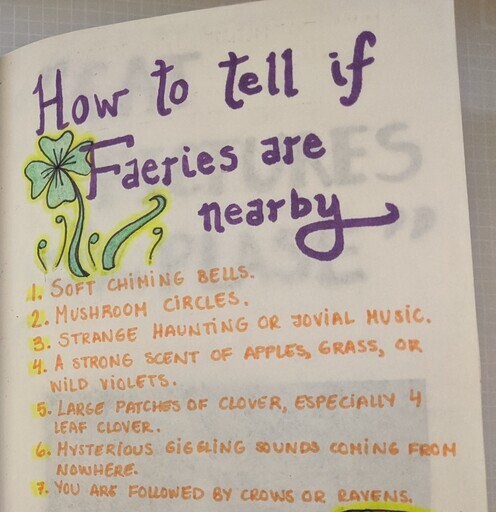 How to tell if
Faeries are
nearby
1. SOFT CHIMING BELLS.
2. MUSHROOM CIRCLES.
3. STRANGE HAUNTING OR JOVIAL MUSIC.
4. A STRONG SCENT OF APPLES, GRASS, OR
WILD VIOLETS.
5. LARGE PATCHES OF CLOVER, ESPECIALLY 4
LEAF CLOVER.
6. MYSTERIOUS GIGGLING SOUNDS COMING FROM
NOWHERE.
7. YOU ARE FOLLOWED BY CROWS OR RAVENS.